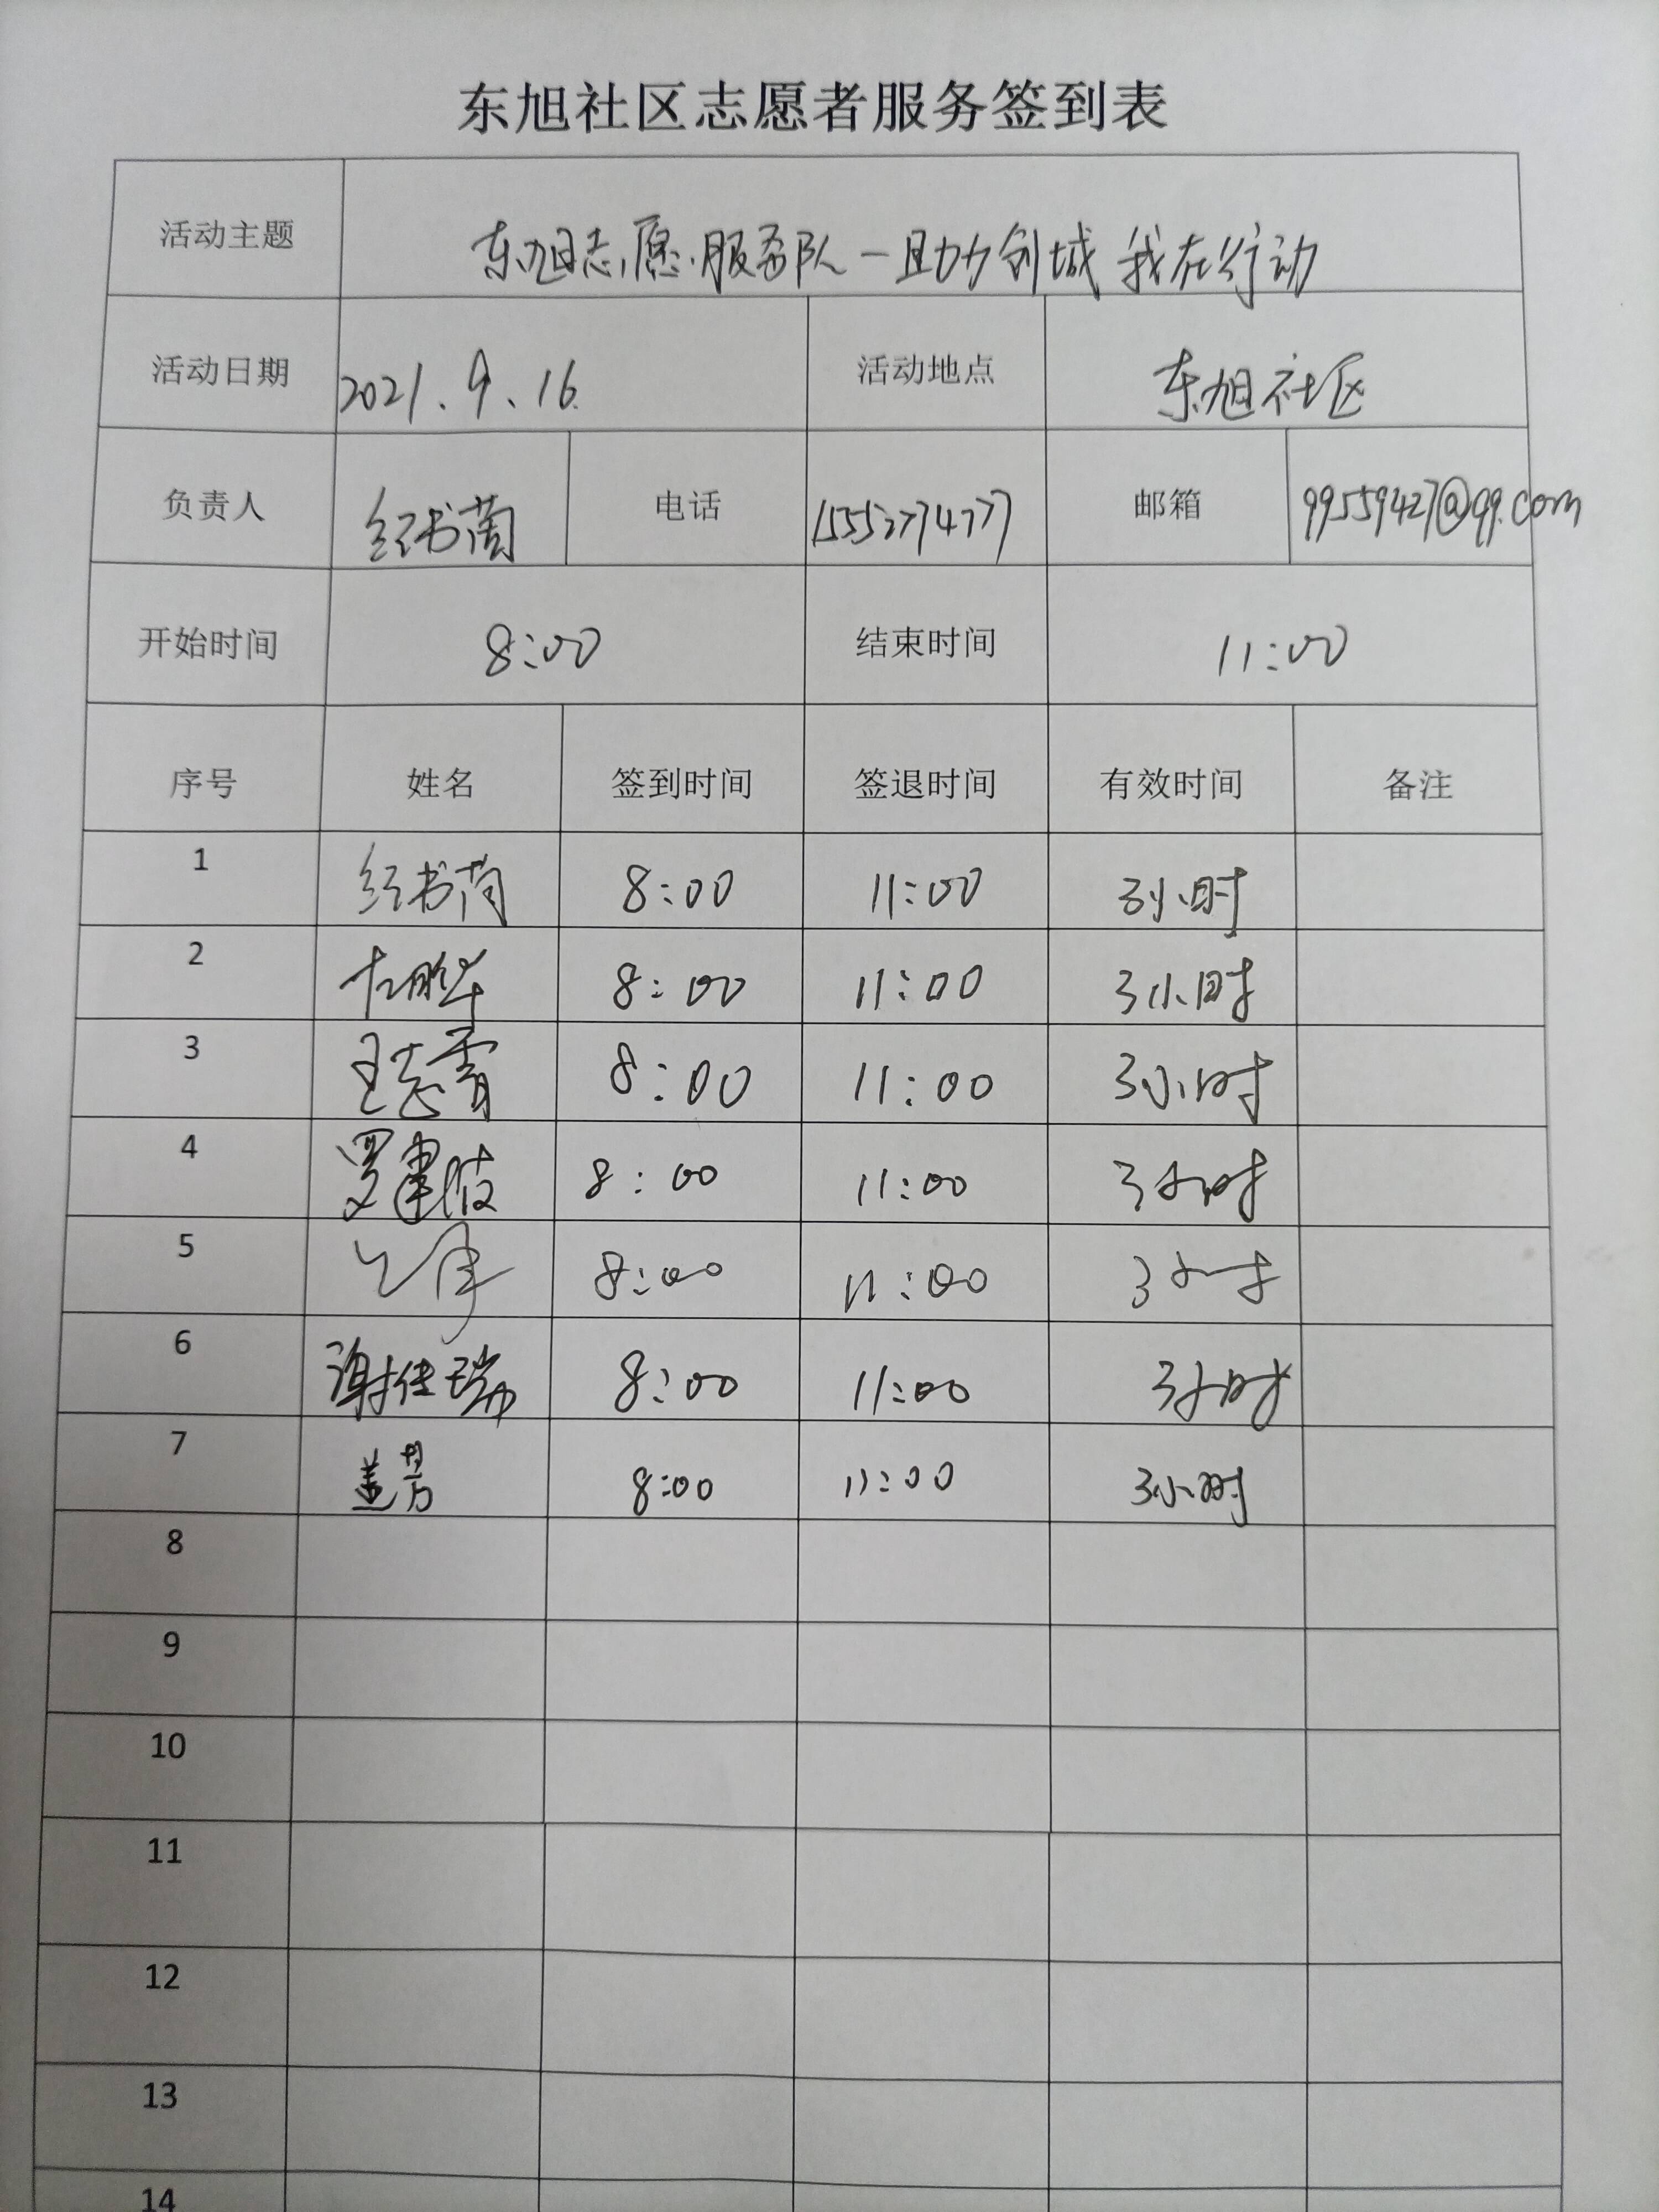 东旭社区志愿者服务签到表
活动主题 东旭志愿服务队—助力创城 我在行动
活动日期 2021.9.16. 活动地点 东旭社区
负责人 电话 15552774777 邮箱 99559427@qq.com
开始时间 8:00 结束时间 11:00
序号 姓名 签到时间 签退时间 有效时间 备注
1 8:00 11:00 3小时
2 8:00 11:00 3小时
3 王志霄 8:00 11:00 3小时
4 罗建波 8:00 11:00 3小时
5 8:00 11:00 3小时
6 谢佳瑞 8:00 11:00 3小时
7 盖芳 8:00 11:00 3小时
8
9
10
11
12
13
14